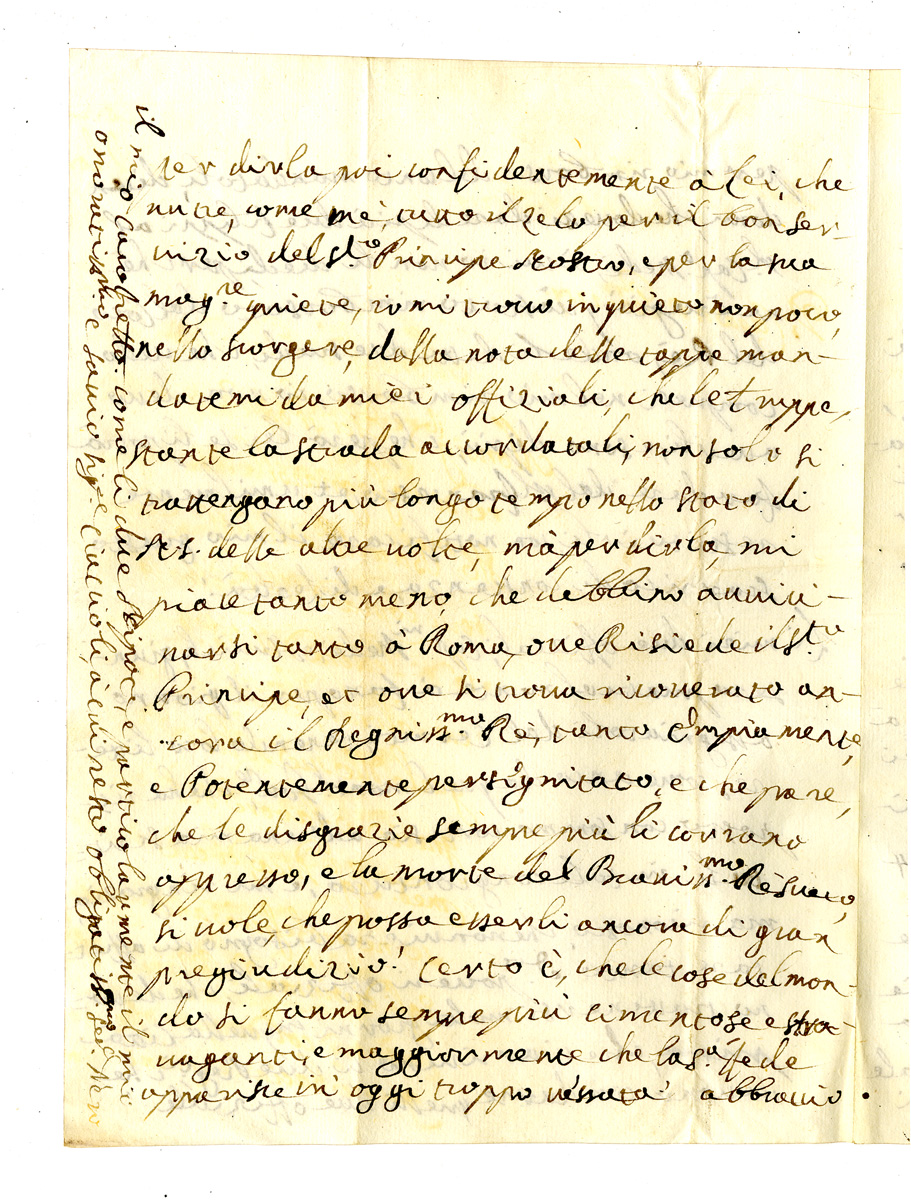 Per dirla poi confidentemente à Lei, che
nutre, come mè, tutto il zelo per il bon ser-
vizio del S.to Principe Nostro, e per la sua
mag.re quiete, io mi trovo inquieto non poco,
nello scorgere, dalla nota delle tappe man-
datemi da miei offiziali, che le truppe,
stante la strada accordatali, non solo si
trattengano più longo tempo nello stato di
N.S. delle altre volte, mà per dirla, mi
piace tanto meno, che debbino avvici-
narsi tanto à Roma, ove Risiede il S.to
Principe, et ove si trova ricoverato an-
cora il Regniss.mo Rè, tanto Empiamente,
e Potentemente persignitato, e che pare,
che le disgrazie sempre più li corrano
appresso, e la morte del Braviss.mo Rè Sueco,
si vole, che possa esserli ancora di gran
pregiudizio! Certo è, che le cose del mon-
do si fanno sempre più cimentose e stra-
vaganti, e maggiormente che la S.a Sede
apparisce in oggi troppo vessata! abbraccio
il mio Caro Betto. come li due Nipoti, e particolarmente il mio
onoratissimo e savio Sig.re Ciaccioli, à cui resto obligatiss.mo Ser.e Vero